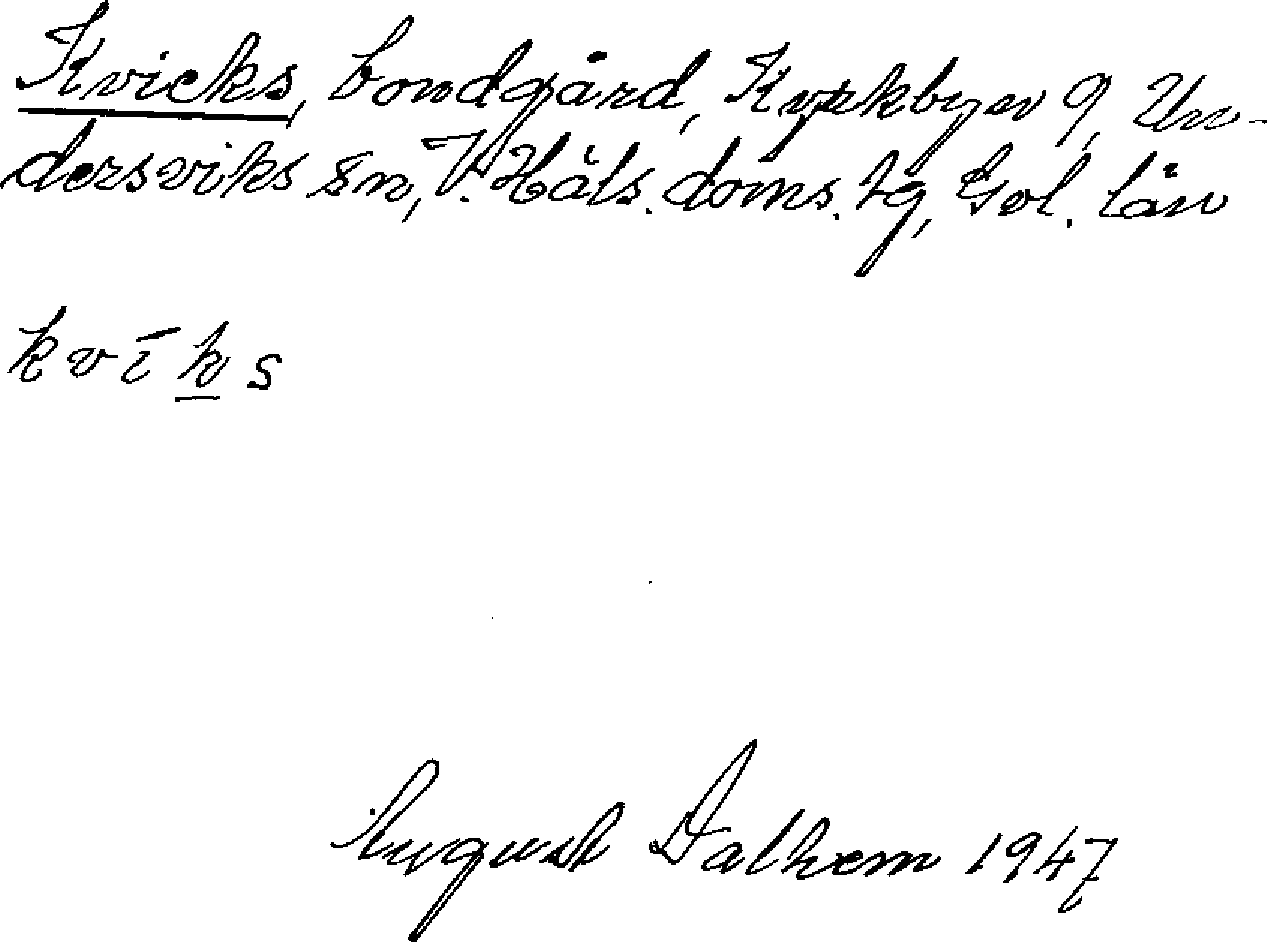 Kvicks, bondgård, Kyrkbyen 9, Un-
dersviks sn, V. Häls. doms. tg, Gvl. län
kvīks
August Dalhem 1947